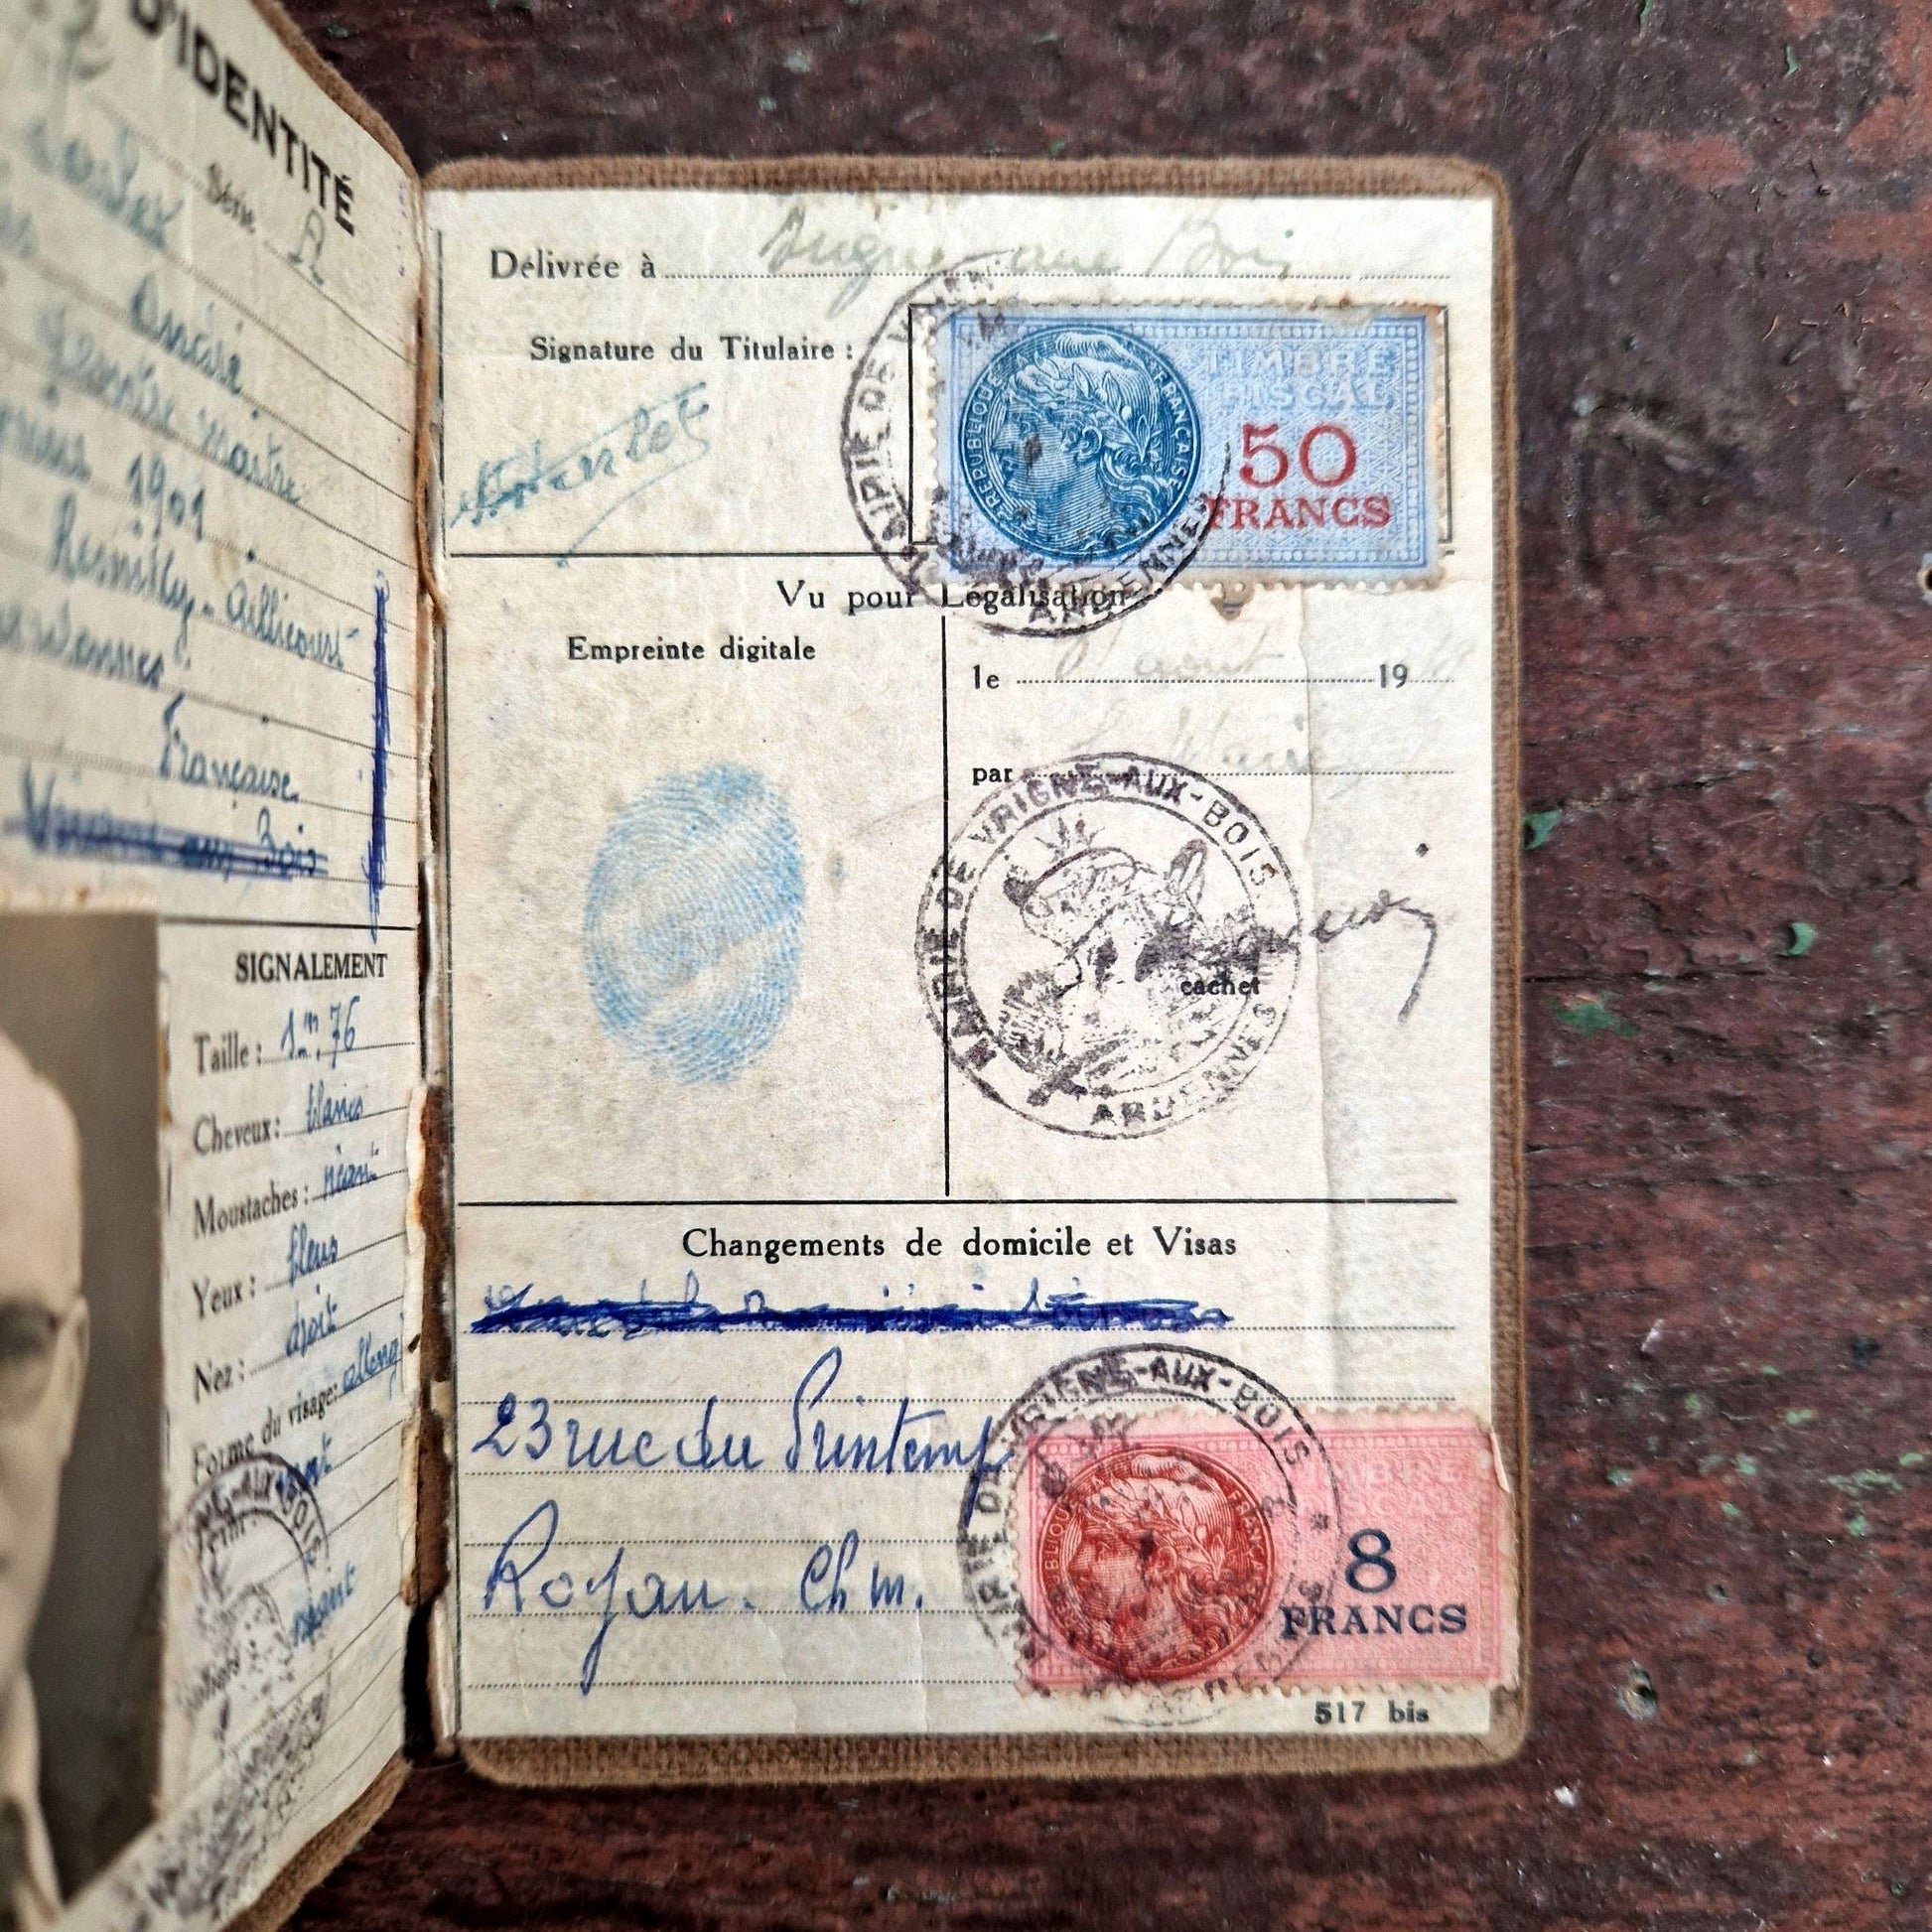 D'IDENTITÉ
Série A
André
1901
Remilly-Aillicourt
Ardennes
Française
SIGNALEMENT
Taille : 1m,76
Cheveux : blancs
Moustaches : néant
Yeux : bleus
Nez : droit
Forme du visage : allongé
AUX-BOIS
néant
Délivrée à Vrigne aux Bois
Signature du Titulaire :
MAIRIE DE VRIGNE
ARDENNES
RÉPUBLIQUE FRANÇAISE
TIMBRE
FISCAL
50
FRANCS
Vu pour Légalisation
Empreinte digitale
le août 19
par le Maire
MAIRIE DE VRIGNE-AUX-BOIS
ARDENNES
cachet
Changements de domicile et Visas
23 rue du Printemps
Royan. Ch m.
MAIRIE DE VRIGNE-AUX-BOIS
RÉPUBLIQUE FRANÇAISE
TIMBRE
FISCAL
8
FRANCS
517 bis